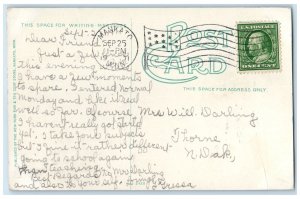 THIS SPACE FOR WRITING
MANKATO
SEP 25
MINN.
POST
CARD
THIS SPACE FOR ADDRESS ONLY.
U.S. POSTAGE
ONE CENT
Sept-
Dear Friend
Just a few
this evening
have a few moments
to spare. I entered normal
Monday and like it real
well so far. Of course
I haven't really got started
yet. I take four subjects
but I find it rather different
going to school again
than teaching.
Best regards to Mrs Darling
and also to yourself.
Gressa
Mrs Will Darling
Thorne
N. Dak.